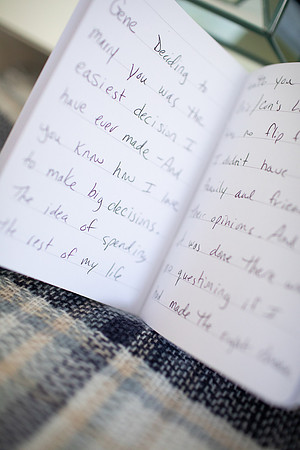 Gene Deciding to
marry you was the
easiest decision I
have ever made - And
you know how I love
to make big decisions.
The idea of spending
the rest of my life
you
no flip f
I didn't have
family and frien
opinions. And
was done there w
questioning if I
made the right